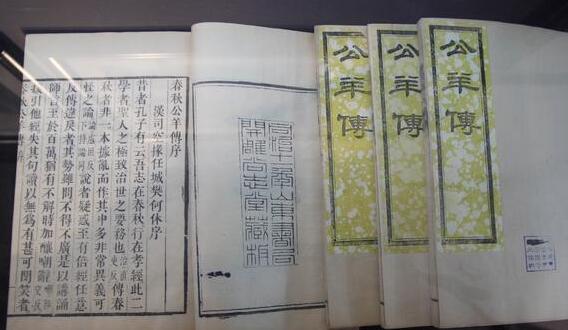 公羊傳
公羊傳
公羊傳
同治十一年山東書局
開雕尚志堂藏板
春秋公羊傳序
漢司空掾任城樊何休序
昔者孔子有云吾志在春秋行在孝經此二
學者聖人之極致治世之要務也治直吏反傳春
秋者非一本據亂而作其中多非常異義可
怪之論說者疑惑至有倍經任意
反傳違戾者其勢雖問不得不廣是以講誦
師言至於百萬猶有不解時加釀嘲辭
援引他經失其句讀以無為有甚可閔笑者
春秋公羊傳序